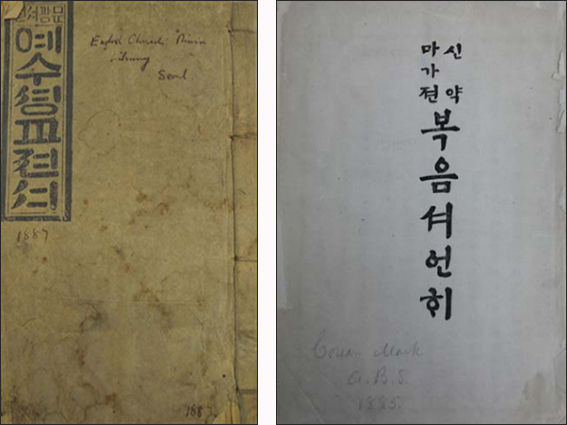 문광셔원
예수셩교젼셔
English Church Mission
Library
Seoul
1887
188
신약
마가젼
복음셔언히
Corean Mark
A.B.S.
1885.